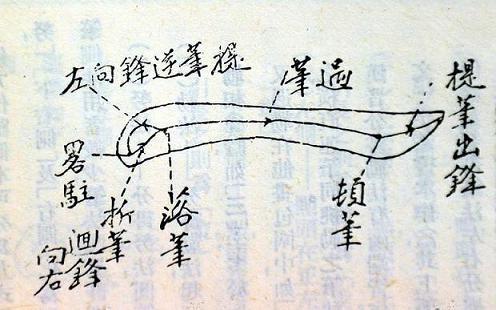 提筆出鋒
過筆
頓筆
提筆逆鋒向左
落筆
折筆
畧駐
迴鋒
向右